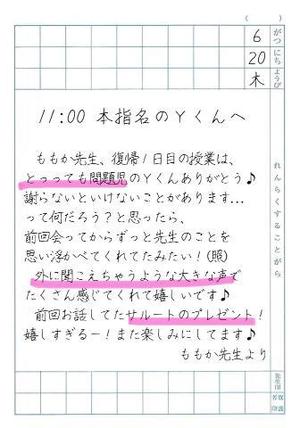 (　　)
6
がつ
20
にち
木
ようび
れんらくすることがら
11:00 本指名のYくんへ
ももか先生、復帰1日目の授業は、
とっっても問題児のYくんありがとう♪
謝らないといけないことがあります...
って何だろう?と思ったら、
前回会ってからずっと先生のことを
思い浮かべてくれてたみたい!(照)
外に聞こえちゃうような大きな声で
たくさん感じてくれて嬉しいです♪
前回お話してたサルートのプレゼント!
嬉しすぎるー!また楽しみにしてます♪
ももか先生より